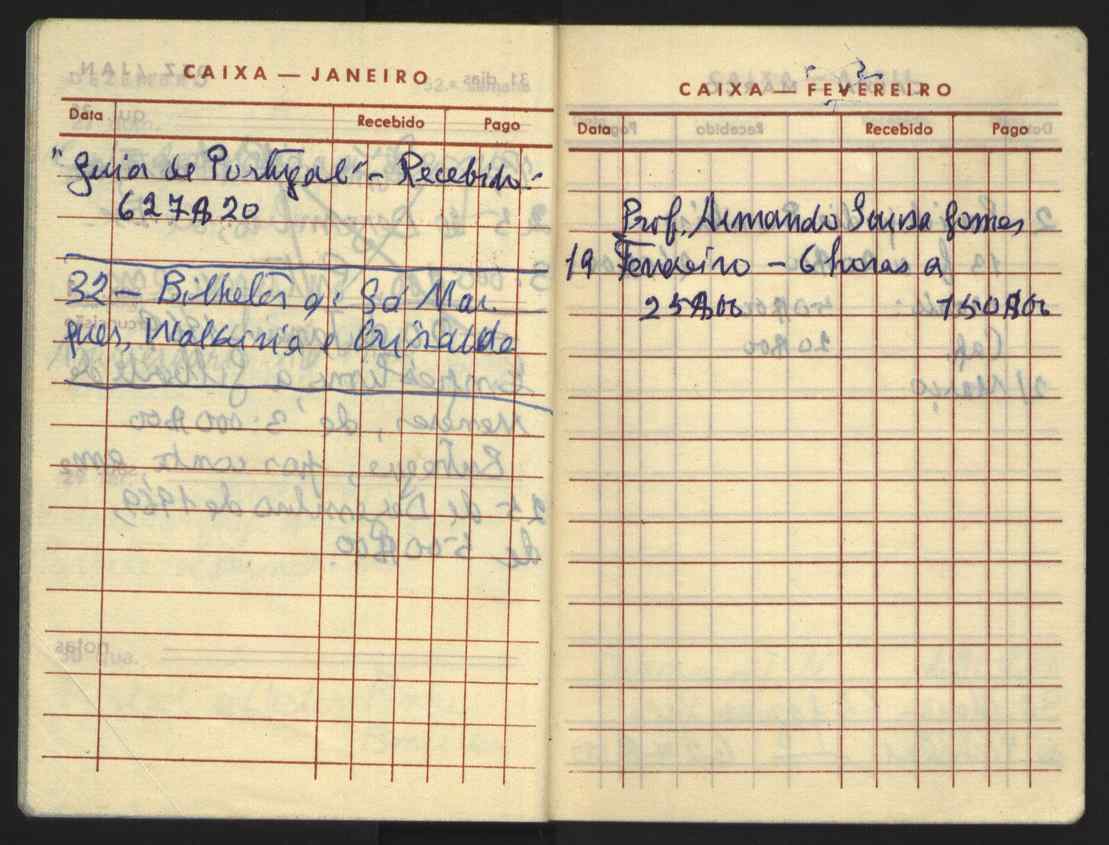 CAIXA — JANEIRO
Data Recebido Pago
"Guia de Portugal" - Recebido:-
627$20
32 - Bilhetes a: Sá Mar-
ques, Walkiria e Griselda
CAIXA — FEVEREIRO
Data Recebido Pago
Prof. Armando Sousa Gomes
19 Fevereiro - 6 horas a
25$00 150$00